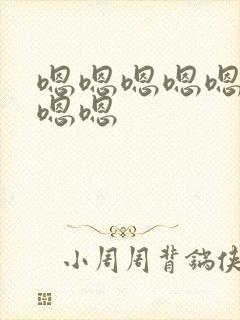 嗯嗯嗯嗯嗯
嗯嗯
小周周背锅侠